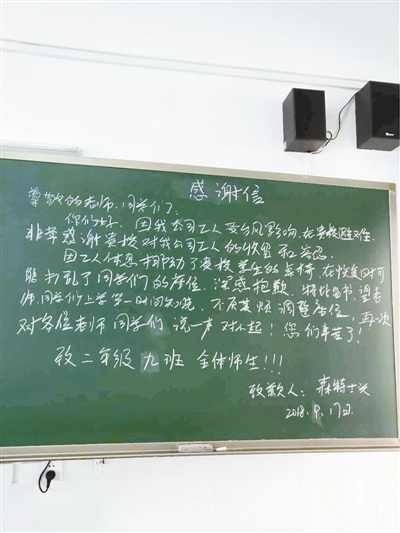 感谢信
尊敬的老师、同学们:
你们好，因我公司工人受台风影响，在贵校避风
非常感谢贵校对我公司工人的收留和容忍
因工人休息挪动了贵校学生的桌椅，在恢复时可
能打乱了同学们的座位，深感抱歉，特此告书望老
师、同学们上学第一时间
不厌其烦调整座位，再一次
对各位老师同学们说一声对不起！您们辛苦了！
致二年级九班全体师生!!!
致歉人：森特士兴
2018.9.17日.